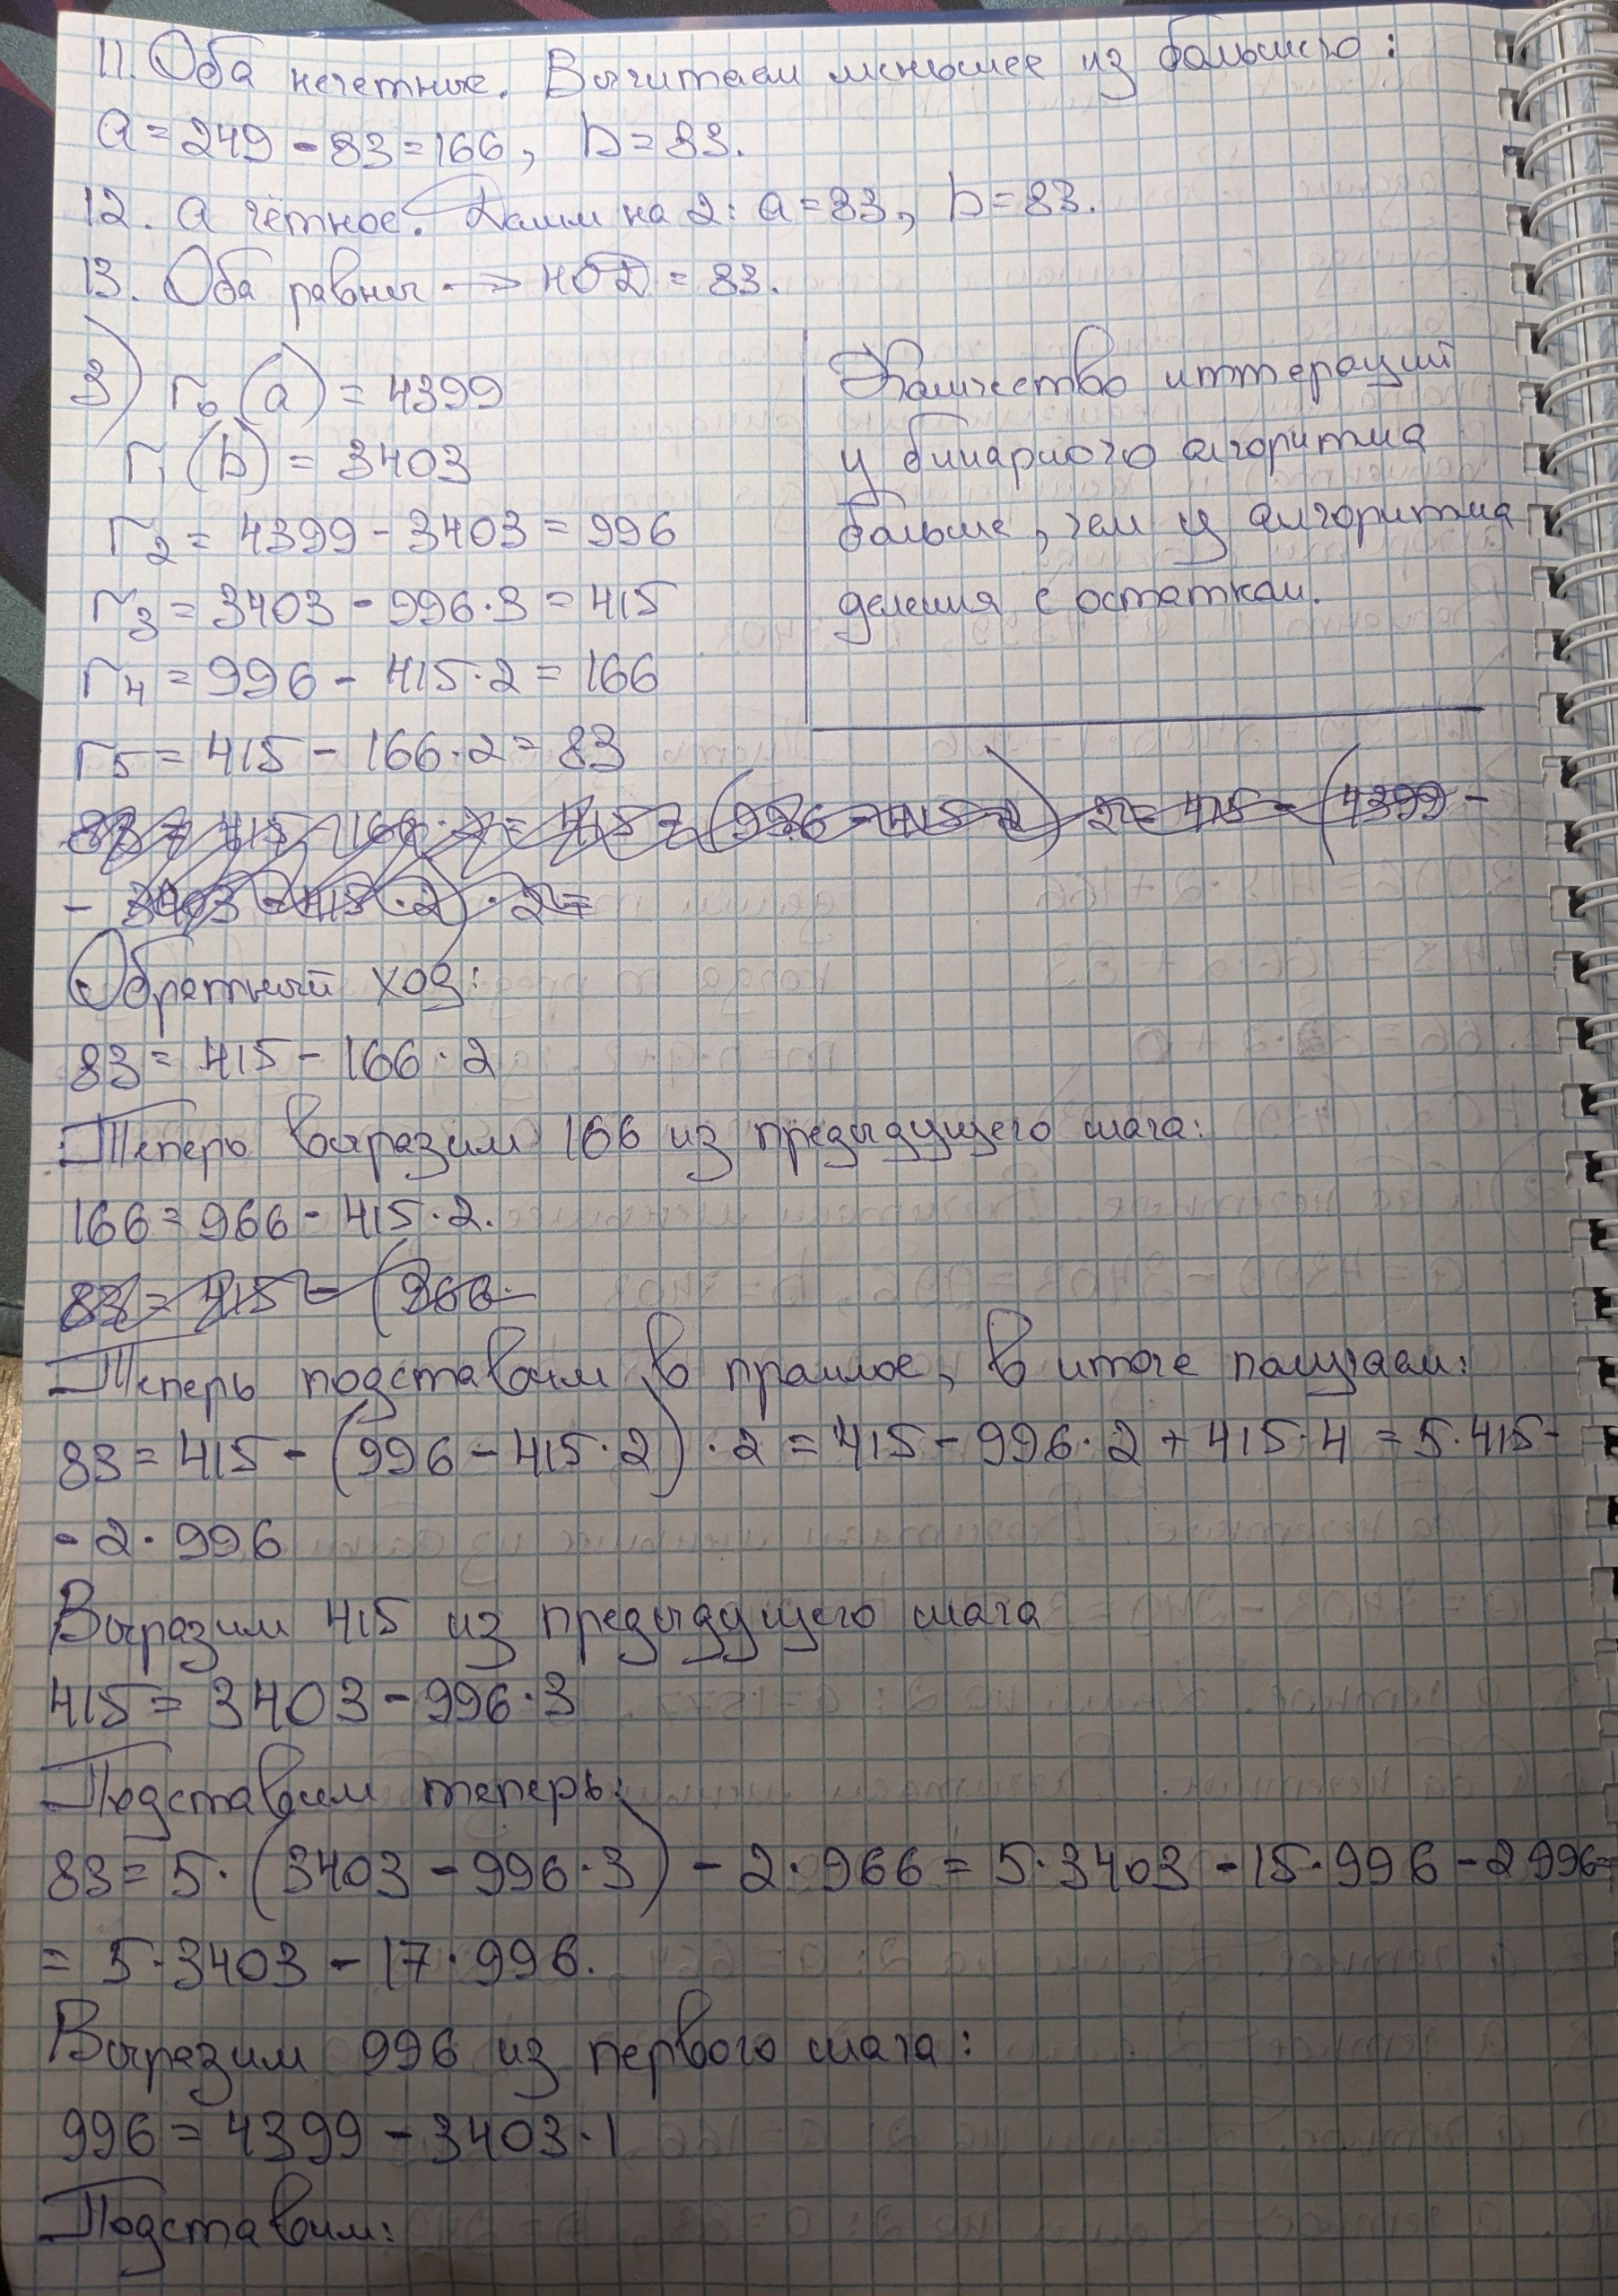 11. Оба нечетные. Вычитаем меньшее из большего:
a = 249 - 83 = 166, b = 83.
12. a чётное. Делим на 2: a = 83, b = 83.
13. Оба равны → НОД = 83.
3) r₀ (a) = 4399
r₁ (b) = 3403
r₂ = 4399 - 3403 = 996
r₃ = 3403 - 996·3 = 415
r₄ = 996 - 415·2 = 166
r₅ = 415 - 166·2 = 83
Количество иттераций
у бинарного алгоритма
больше, чем у алгоритма
деления с остатком.
83 = 415 - 166·2 = 415 - (996 - 415·2)·2 = 415 - (4399 -
- 3403 - 415·2)·2 =
Обратный ход:
83 = 415 - 166·2
Теперь выразим 166 из предыдущего шага:
166 = 966 - 415·2.
83 = 415 - (966·
Теперь подставим в прошлое, в итоге получаем:
83 = 415 - (996 - 415·2)·2 = 415 - 996·2 + 415·4 = 5·415 -
- 2·996
Выразим 415 из предыдущего шага
415 = 3403 - 996·3
Подставим теперь:
83 = 5·(3403 - 996·3) - 2·966 = 5·3403 - 15·996 - 2 996 =
= 5·3403 - 17·996.
Выразим 996 из первого шага:
996 = 4399 - 3403·1
Подставим: